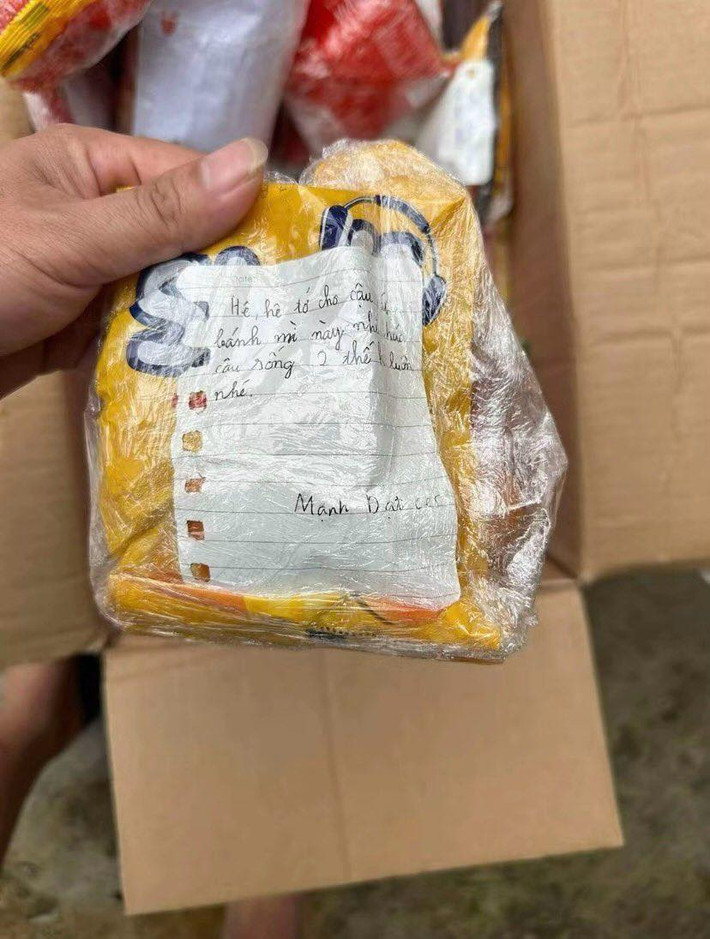 Hé, hê tớ cho cậu
bánh mì này
cậu sống 2 thế luôn
nhé.
Mạnh Đạt